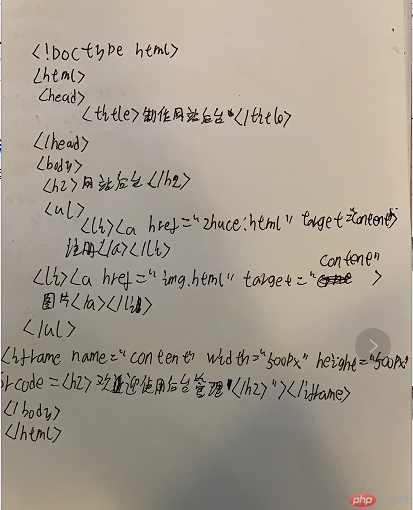 <!DOCtype html>
<html>
<head>
<thtle>制作网站后台</thtle>
</head>
<body>
<h2>网站后台</h2>
<ul>
<li><a href="zhuce.html" target="content>
注册</a></li>
content"
<li><a href="img.html" target=" >
图片</a></li>
</ul>
<iframe name="content" width="500px" height="500px"
srcode=<h2>欢迎使用后台管理</h2>"></iframe>
</body>
</html>
php